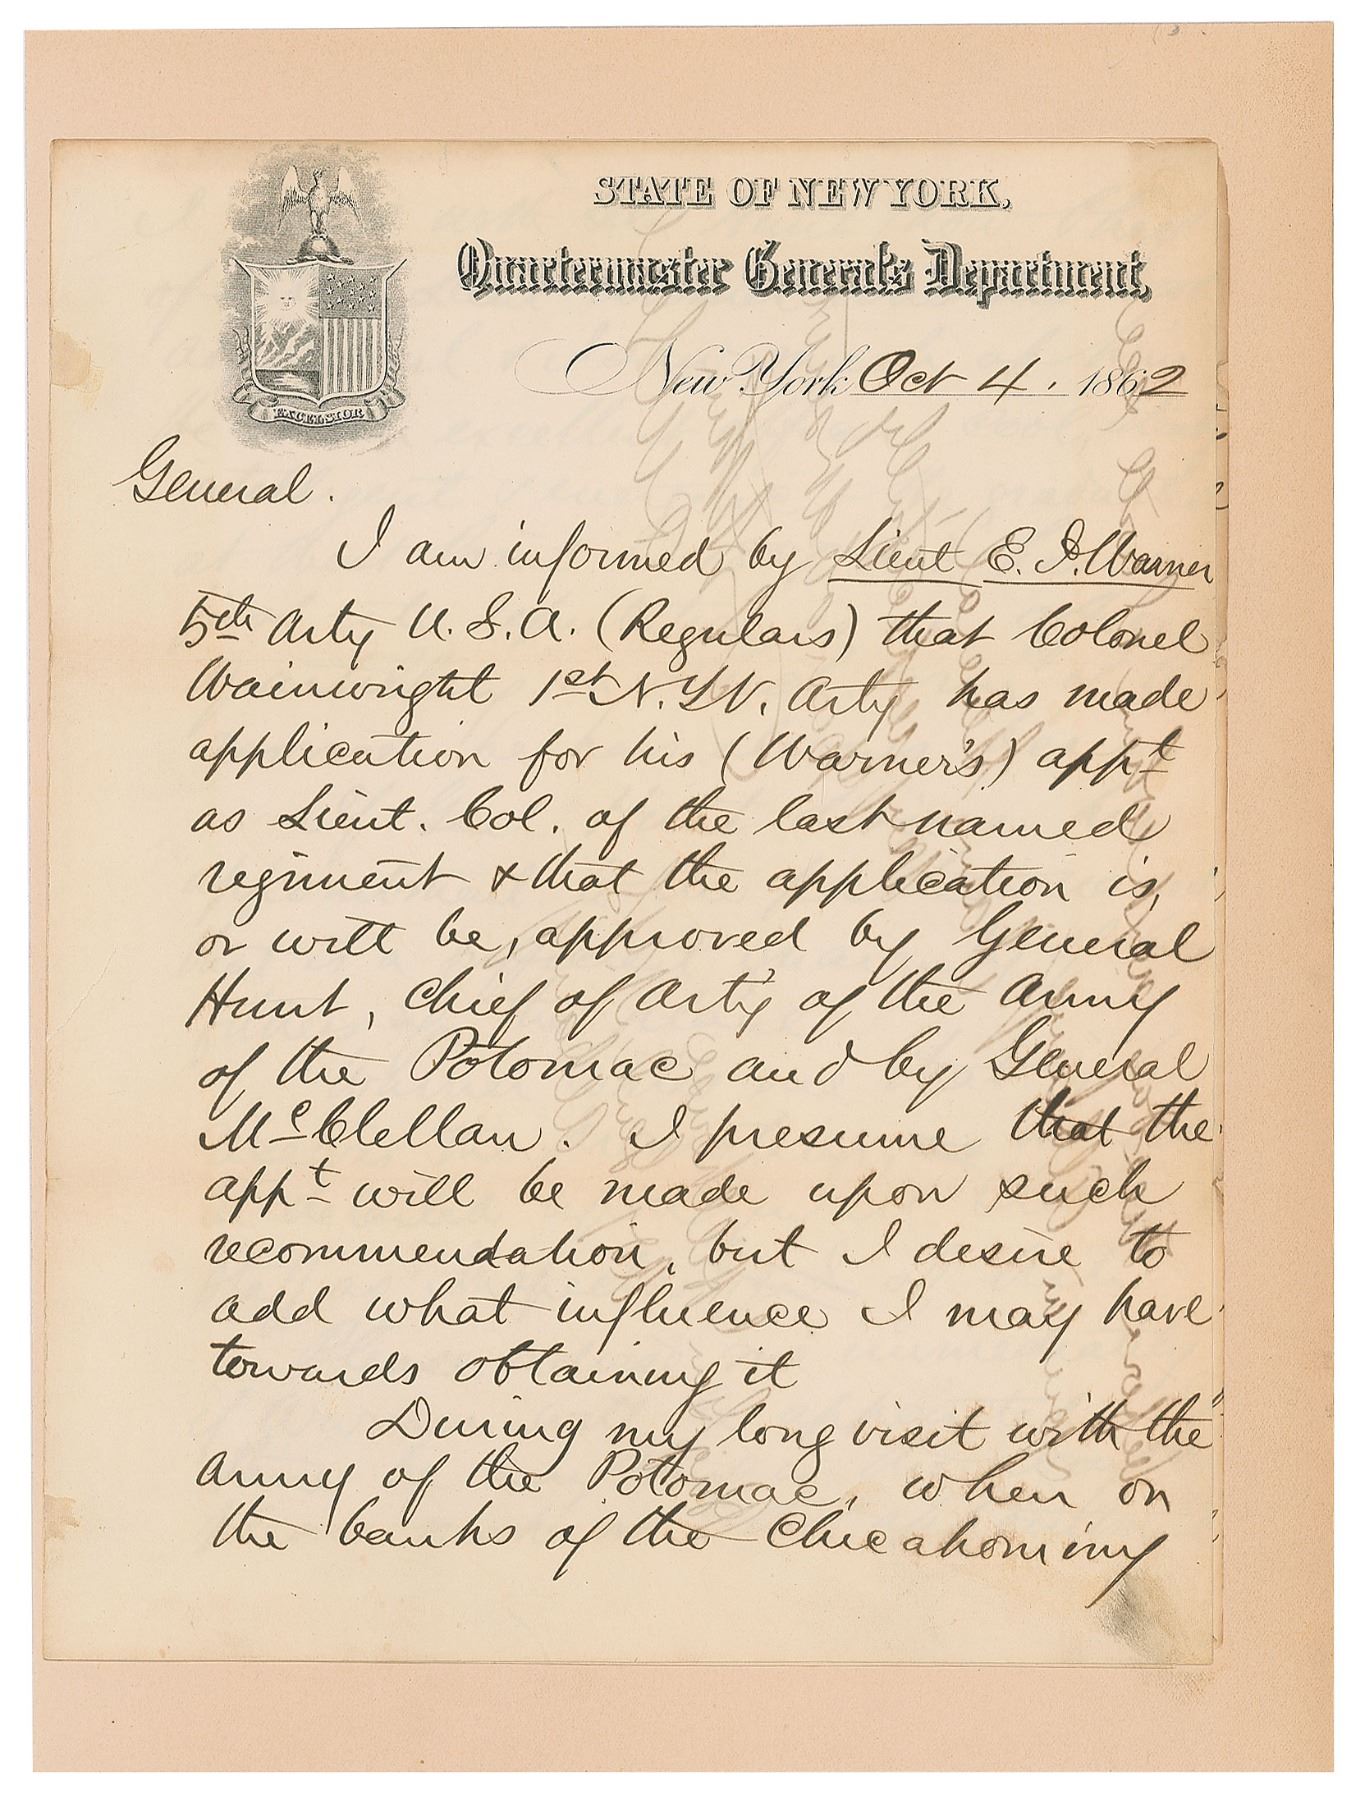 STATE OF NEW YORK,
Quartermaster General's Department,
New York Oct 4. 1862
EXCELSIOR
General.
I am informed by Lieut E. R. Warner
5th Arty U. S. A. (Regulars) that Colonel
Wainwright 1st N. Y. V. Arty has made
application for his (Warner's) appt
as Lieut. Col. of the last named
regiment & that the application is,
or will be, approved by General
Hunt, Chief of Art'y of the Army
of the Potomac and by General
McClellan. I presume that the
appt will be made upon such
recommendation, but I desire to
add what influence I may have
towards obtaining it
During my long visit with the
Army of the Potomac, when on
the banks of the Chicahominy